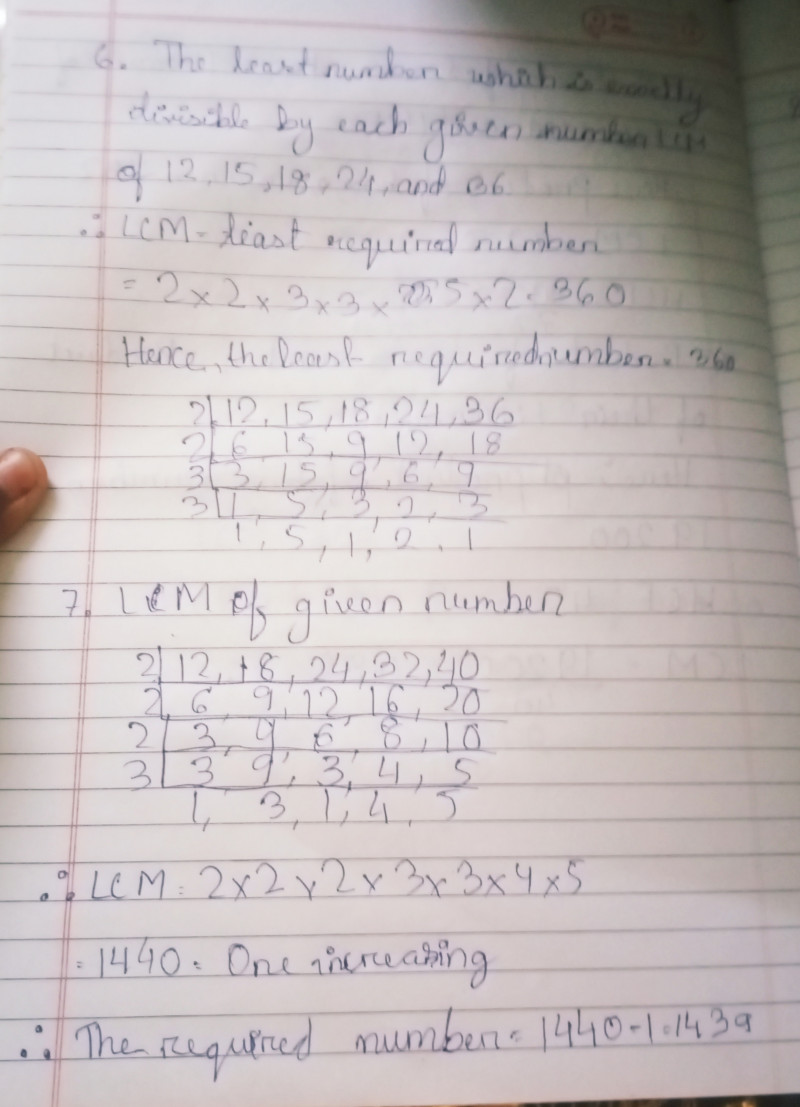 6. The least number which is exactly
divisible by each given number LCM
of 12, 15, 18, 24, and 36
∴ LCM - least required number
= 2 × 2 × 3 × 3 × 5 × 2 = 360
Hence, the least required number = 360
2 | 12, 15, 18, 24, 36
2 | 6, 15, 9, 12, 18
3 | 3, 15, 9, 6, 9
3 | 1, 5, 3, 2, 3
1, 5, 1, 2, 1
7. LCM of given number
2 | 12, 18, 24, 32, 40
2 | 6, 9, 12, 16, 20
2 | 3, 9, 6, 8, 10
3 | 3, 9, 3, 4, 5
1, 3, 1, 4, 5
∴ LCM = 2×2×2×3×3×4×5
= 1440 = One increasing
∴ The required number = 1440-1=1439